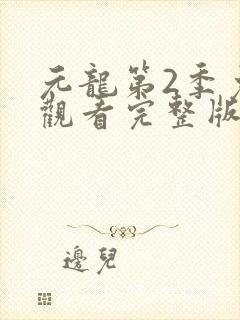 元龍第2季
觀看完整版
邊兒